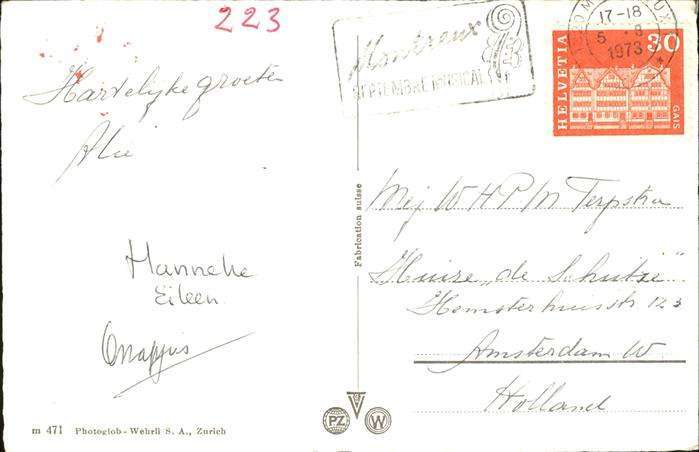 223
Montreux
SEPTEMBRE MUSICAL
17-18
5 - 9
1973
HELVETIA
30
GAIS
Hartelijke groeten
Alie
Hanneke
Eileen
Fabrication suisse
Mej W H P M Terpstra
Huize „de Schutse"
Hemsterhuisstr 123
Amsterdam W
Holland
PZ
W
m 471 Photoglob-Wehrli S. A., Zurich